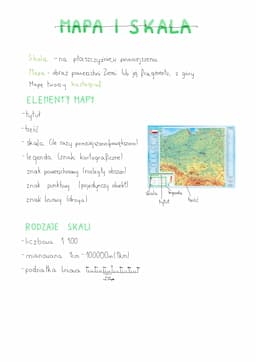 MAPA I SKALA
Skala - na płaszczyznach pomniejszenie
Mapa - obraz powierzchni Ziemi lub jej fragmentu, z góry
Mapę tworzy kartograf
ELEMENTY MAPY
- tytuł
- treść
- skala (ile razy pomniejszona/powiększona)
- legenda (znaki kartograficzne)
znak powierzchniowy (rozległy obszar)
znak punktowy (pojedynczy obiekt)
znak liniowy (droga)
skala
legenda
tytuł
treść
RODZAJE SKALI
- liczbowa 1:100
- mianowana 1cm - 100000cm (1km)
- podziałka liniowa